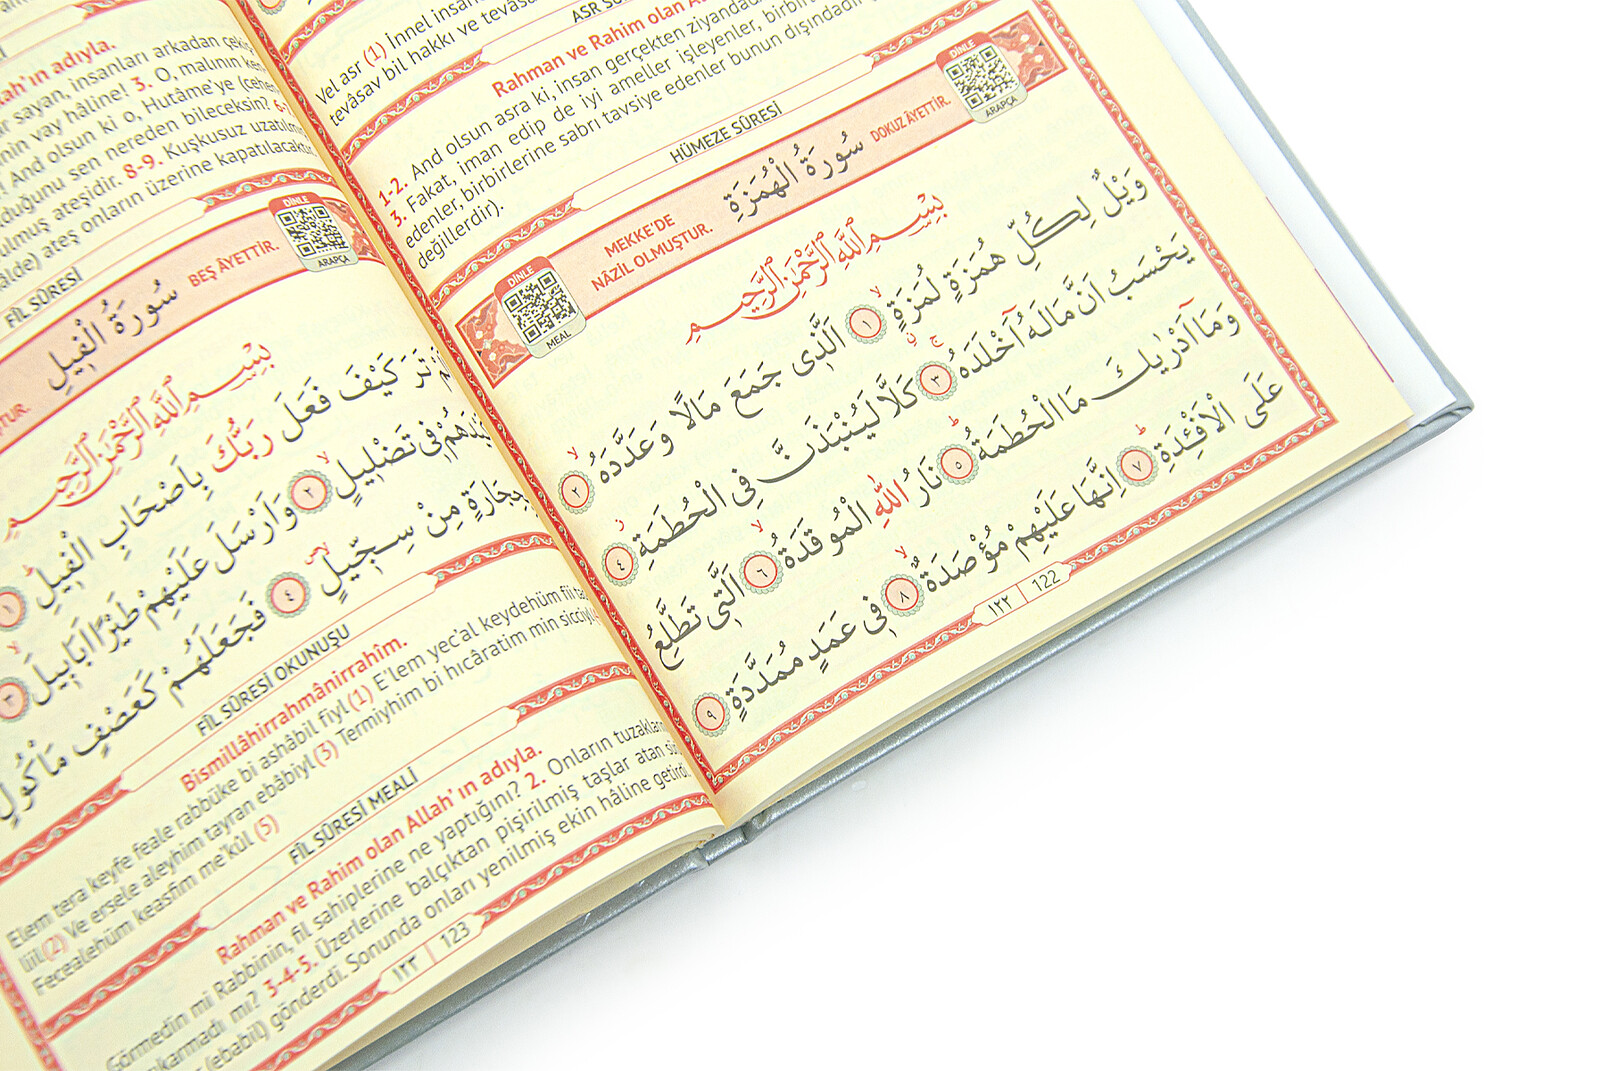 Vel asr (1) İnnel insan
tevâsav bil hakkı ve tevâsa
ASR SÛ
Rahman ve Rahim olan
1-2. And olsun asra ki, insan gerçekten ziyandadı
3. Fakat, iman edip de iyi ameller işleyenler,
edenler, birbirlerine sabrı tavsiye edenler bunun dışındadır
değillerdir).
HÜMEZE SÛRESİ
DİNLE
ARAPÇA
DOKUZ ÂYETTİR.
سُورَةُ الْهُمَزَةِ
MEKKE'DE
NÂZİL OLMUŞTUR.
DİNLE
MEAL
بِسْمِ اللّٰهِ الرَّحْمٰنِ الرَّحِيمِ
وَيْلٌ لِكُلِّ هُمَزَةٍ لُمَزَةٍ ١ اَلَّذٖى جَمَعَ مَالًا وَعَدَّدَهُ ٢
يَحْسَبُ اَنَّ مَالَهُ اَخْلَدَهُ ٣ كَلَّا لَيُنْبَذَنَّ فِى الْحُطَمَةِ ٤
وَمَا اَدْرٰيكَ مَا الْحُطَمَةُ ٥ نَارُ اللّٰهِ الْمُوقَدَةُ ٦ اَلَّتٖى تَطَّلِعُ
عَلَى الْاَفْـِٔدَةِ ٧ اِنَّهَا عَلَيْهِمْ مُؤْصَدَةٌ ٨ فٖى عَمَدٍ مُمَدَّدَةٍ ٩
١٢٢ | 122
ah'ın adıyla.
ar sayan, insanları arkadan çekiş
nin vay hâline! 3. O, malının ken
! And olsun ki o, Hutâme'ye (cehen
duğunu sen nereden bileceksin? 6-
ulmuş ateşidir. 8-9. Kuşkusuz uzatılmış
âlde) ateş onların üzerine kapatılacaktır
FİL SÛRESİ
DİNLE
ARAPÇA
BEŞ ÂYETTİR.
سُورَةُ الْفٖيلِ
ŞTUR.
بِسْمِ اللّٰهِ الرَّحْمٰنِ الرَّحِيمِ
تَرَ كَيْفَ فَعَلَ رَبُّكَ بِاَصْحَابِ الْفٖيلِ ١
يْدَهُمْ فٖى تَضْلٖيلٍ ٢ وَاَرْسَلَ عَلَيْهِمْ طَيْرًا اَبَابٖيلَ ٣
بِحِجَارَةٍ مِنْ سِجّٖيلٍ ٤ فَجَعَلَهُمْ كَعَصْفٍ مَاْكُولٍ
FİL SÛRESİ OKUNUŞU
Bismillâhirrahmânirrahîm.
Elem tera keyfe feale rabbüke bi ashâbil fiyl (1) E'lem yec'al keydehüm fii ta
liil (2) Ve ersele aleyhim tayran ebâbiyl (3) Termiyhim bi hıcâratim min sicciyl
Fecealehüm keasfim me'kûl (5)
FİL SÛRESİ MEALİ
Rahman ve Rahim olan Allah'ın adıyla.
Görmedin mi Rabbinin, fil sahiplerine ne yaptığını? 2. Onların tuzakları
karmadı mı? 3-4-5. Üzerlerine balçıktan pişirilmiş taşlar atan sür
(ebabil) gönderdi. Sonunda onları yenilmiş ekin hâline getirdi
١٢٣ | 123